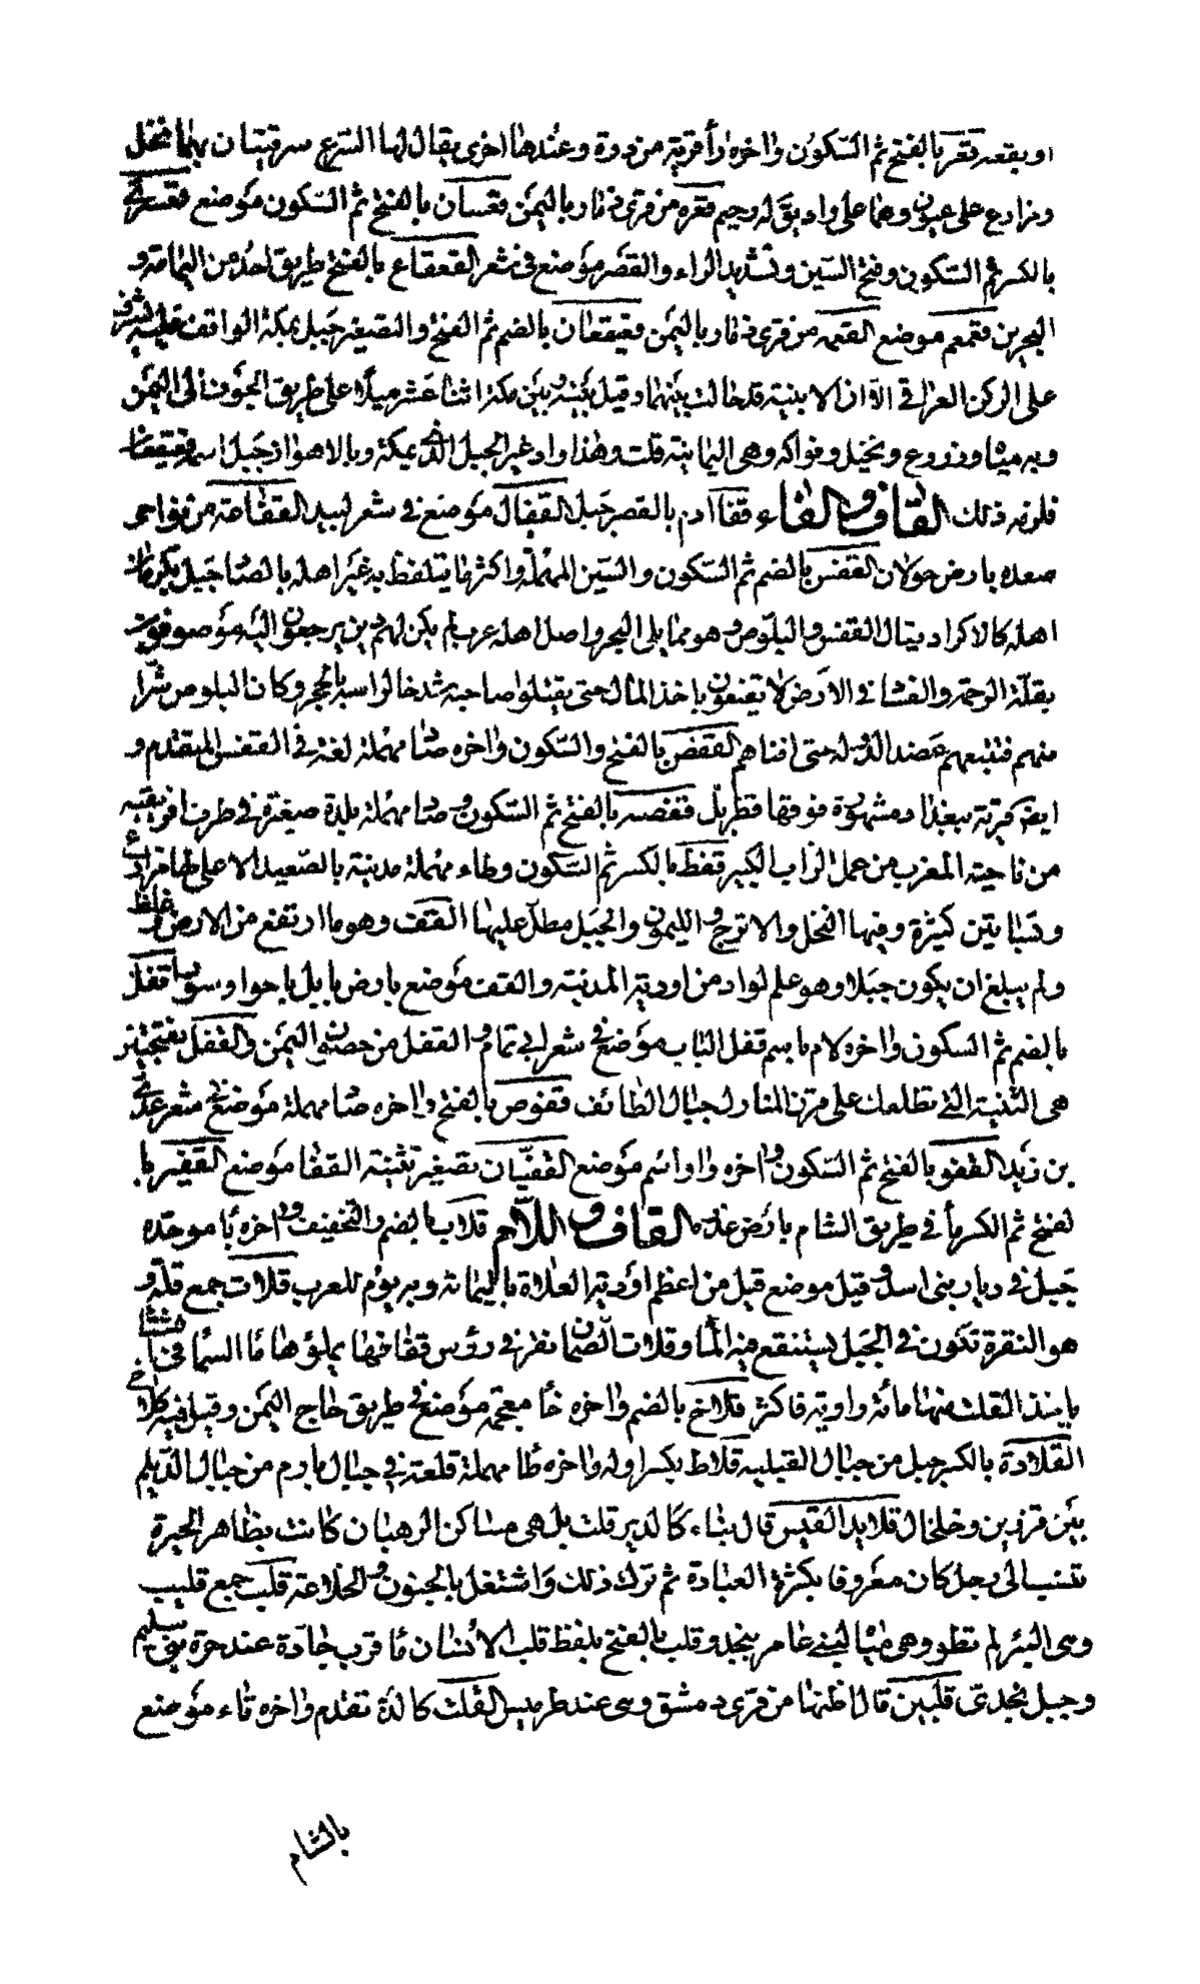 او بقعه تقعر بالفتح ثم السكون واخره رأ قرية من دورة وعندها اخرى يقال لها الشرع سرقيتان بهما نخل
ومزادع على عيون وهما على واد يق له وجيم قعره من قرى ذمار باليمن قعسان بالفتح ثم السكون موضع قعسرى
بالكسر ثم السكون وفتح السين وتشديد الراء والقصر موضع فى شعر القعقاع بالفتح طريق تاخذ من اليمامة و
البحرين قعمعم موضع القعمه من قرى ذمار باليمن قعيقعان بالضم ثم الفتح والتصغير جبل بمكة الواقف عليه يشرف
على الركن العراقى الا ان الابنية قد حالت بينهما وقيل بينه وبين مكة اثنا عشر ميلا على طريق الحوف الى اليمن
وبه مياه وزروع ونخيل وفواكه وهى اليمانية قلت وهذا واد غير الجبل الذى بمكة وبالاهواز جبل اسمه قعيقعان
فلونه ذلك القاف والفاء قفا ادم بالقصر جبل القفال موضع فى شعر لبيد القفاعة من نواحى
صعده بارض خولان القفس بالضم ثم السكون والسين المهملة واكثر ما يتلفظ به غير اهله بالصاد جبل بكرمان
اهله كالاكراد يقال القفس والبلوص وهو مما يلى البحر واصل اهله عرب لم يكن لهم دين يرجعون اليه موصوفون
بقلة الرحمة والفساد فى الارض لا يقنعون باخذ المال حتى يقتلوا صاحبه شدخا لراسه بالحجر وكان البلوص شرا
منهم فتتبعهم عضد الدوله حتى افناهم القفص بالفتح والسكون واخره صاد مهملة لغة فى القفس المتقدم و
ايضا قرية ببغداد مشهورة فوقها قطربل قفصه بالفتح ثم السكون وصاد مهملة بلدة صغيرة فى طرف افريقيه
من ناحية المغرب من عمل الزاب الكبير قفط بالكسر ثم السكون وطاء مهملة مدينة بالصعيد الاعلى لها مزارع
وبساتين كثيرة وفيها النخل والاترج والليمون والجبل مطل عليها القف وهو ما ارتفع من الارض وغلظ
ولم يبلغ ان يكون جبلا وهو علم لواد من اودية المدينة والقف موضع بارض بابل باجوا وسورا قفل
بالضم ثم السكون واخره لام باسم قفل الباب موضع فى شعر ابى تمام والقفل من حصون اليمن والقفل بفتحتين
هى الثنية التى تطلعك على قرن المنازل جبال الطائف قفوص بالفتح واخره صاد مهملة موضع فى شعر عدى
بن زيد القفو بالفتح ثم السكون واخره واو اسم موضع القفيان تصغير تثنية القفا موضع القفير با
لفتح ثم الكسر ماء فى طريق الشام بارض عذره القاف واللام قلاب بالضم والتخفيف واخره با موحده
جبل فى ديار بنى اسد وقيل موضع قيل من اعظم اودية العلاة باليمامة وبه يوم للعرب قلات جمع قلة و
هو النقرة تكون فى الجبل يستنقع فيه الماء وقلات الصمان نقر فى رؤس قفافها يملؤها ماء السماء فى الشتاء
ياخذ القلت منها مائة راوية فاكثر قلاخ بالضم واخره خا معجمه موضع فى طريق حاج اليمن وقيل فيه كلاخ
القلادة بالكسر جبل من جبال القبلية قلاط بكسر اوله واخره طا مهملة قلعة فى جبال تارم من جبال الديلم
بين قزوين وخلخال قلايد القس قال بناء كالدير قلت بل هى مساكن الرهبان كانت بظاهر الحيرة
تنسب الى رجل كان معروفا بكثرة العبادة ثم ترك ذلك واشتغل بالجنون والخلاعة قلب جمع قليب
وهى البئر لم تطو وهى مياه لبنى عامر بنجد وقلب بالفتح بلفظ قلب الانسان ماء قرب حاذة عند حرة بنى سليم
وجبل نجدى قلبين قال اظنها من قرى دمشق وهى عند طرميس القلت كالذى تقدم واخره تاء موضع
بالشام